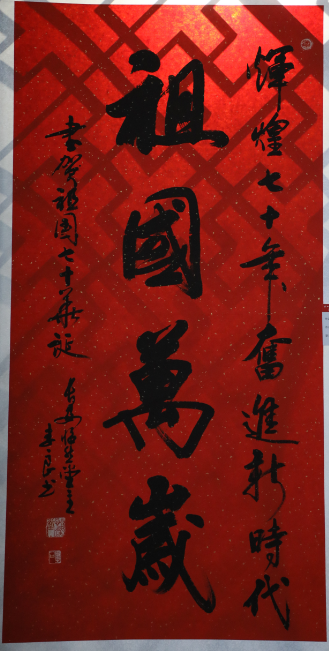 輝煌七十年奮進新時代
祖國萬歲
書賀祖國七十華誕
李良書